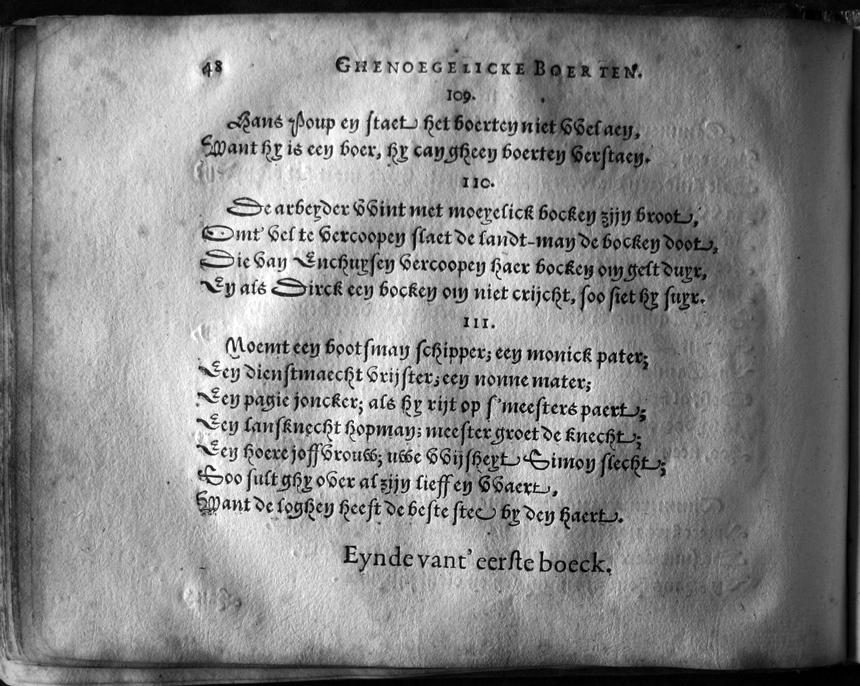 48 GHENOEGELICKE BOERTEN.
109.
Hans Poup en staet het boerten niet VVel aen,
Want hy is een boer, hy can gheen boerten verstaen.
110.
De arbeyder VVint met moeyelick bocken zijn broot,
Omt' vel te vercoopen slaet de landt-man de bocken doot,
Die van Enchuysen vercoopen haer bocken om gelt duyr,
En als Dirck een bocken om niet crijcht, soo siet hy suyr.
111.
Noemt een bootsman schipper; een monick pater;
Een dienstmaecht vrijster; een nonne mater;
Een pagie joncker; als hy rijt op s'meesters paert;
Een lansknecht hopman; meester groet de knecht;
Een hoere joffvrouw; uwe VVijsheyt Simon slecht;
Soo sult ghy over al zijn lieff en VVaert,
Want de loghen heeft de beste stee by den haert.
Eynde vant' eerste boeck.